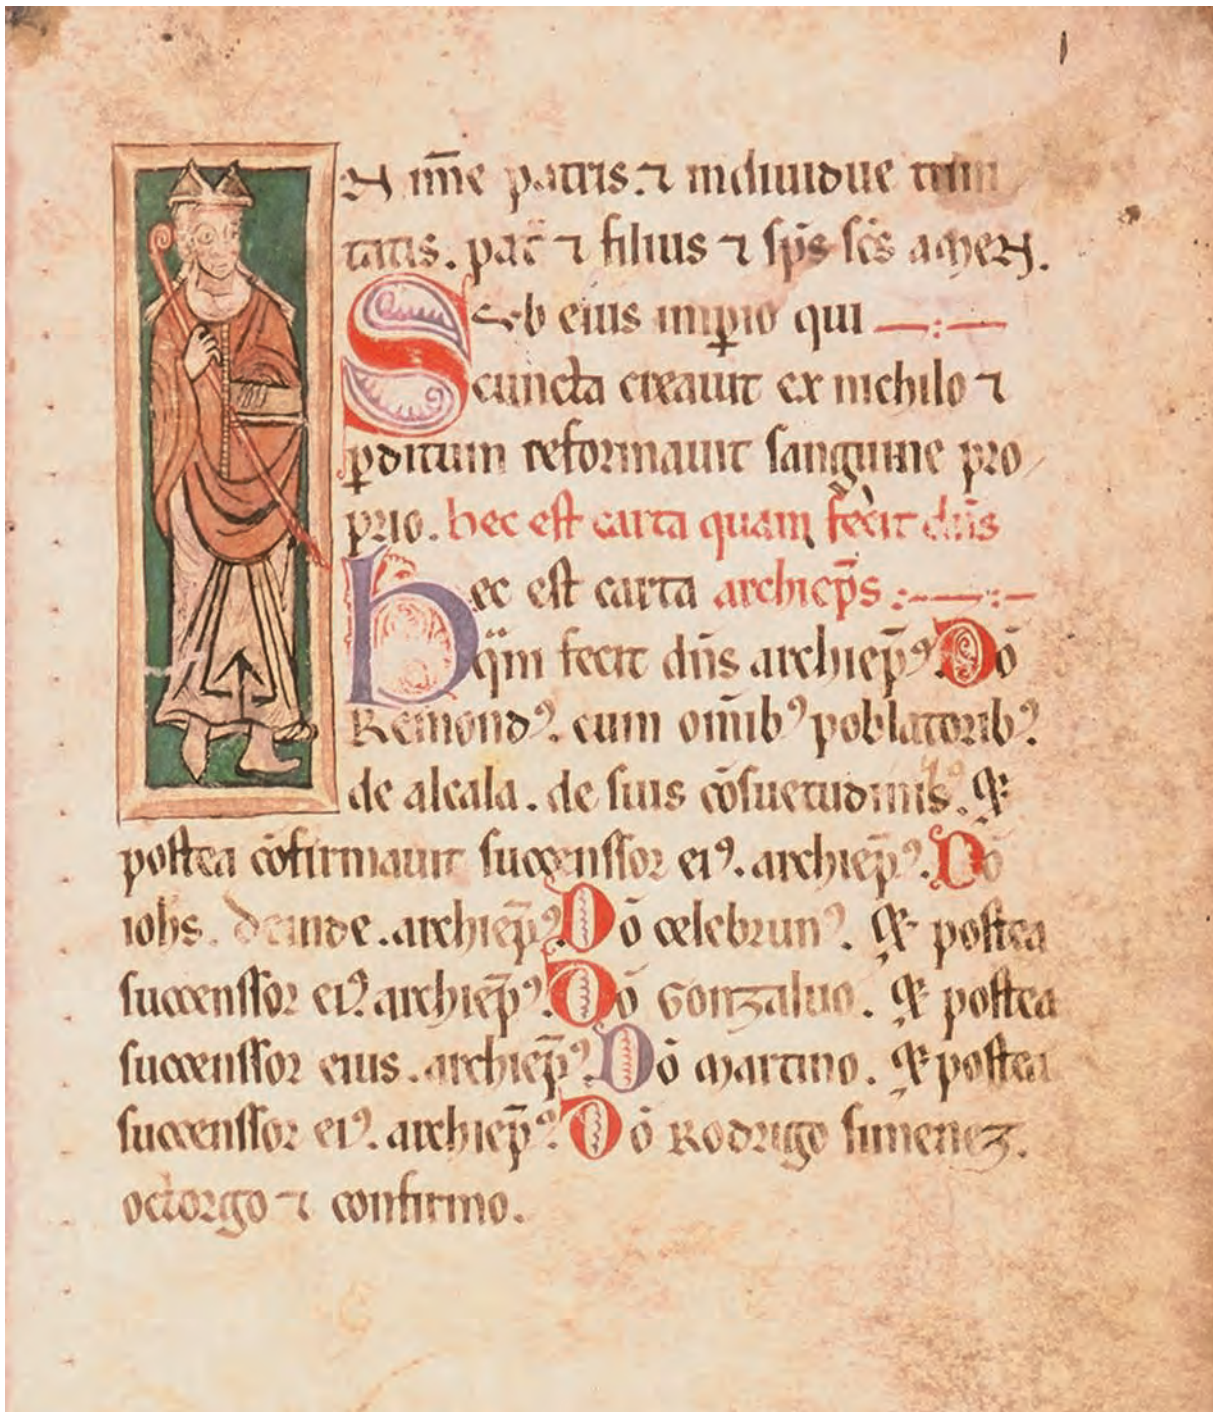 N nn̄e patris. ⁊ indiuidue trini
tatis. pat̄ ⁊ filius ⁊ sp̄s sc̄s amen.
Sub eius imꝑio qui
cuncta creauit ex nichilo ⁊
ꝑditum reformauit sanguine pro
prio. hec est carta quam fecit dn̄s
hec est carta archiep̄s
q̄m fecit dn̄s archiep̄ꝰ. Dō
Remondꝰ. cum om̄ibꝰ poblatoribꝰ.
de alcala. de suis cōsuetudinis. Et
postea cōfirmauit successor eiꝰ. archiep̄ꝰ. Dō
iohs. deinde. archiep̄ꝰ. Dō celebrunꝰ. Et postea
successor eiꝰ. archiep̄ꝰ. Dō Gonzaluo. Et postea
successor eius. archiep̄ꝰ. Dō martino. Et postea
successor eiꝰ. archiep̄ꝰ. Dō Rodrigo simenez.
octorgo ⁊ confirmo.